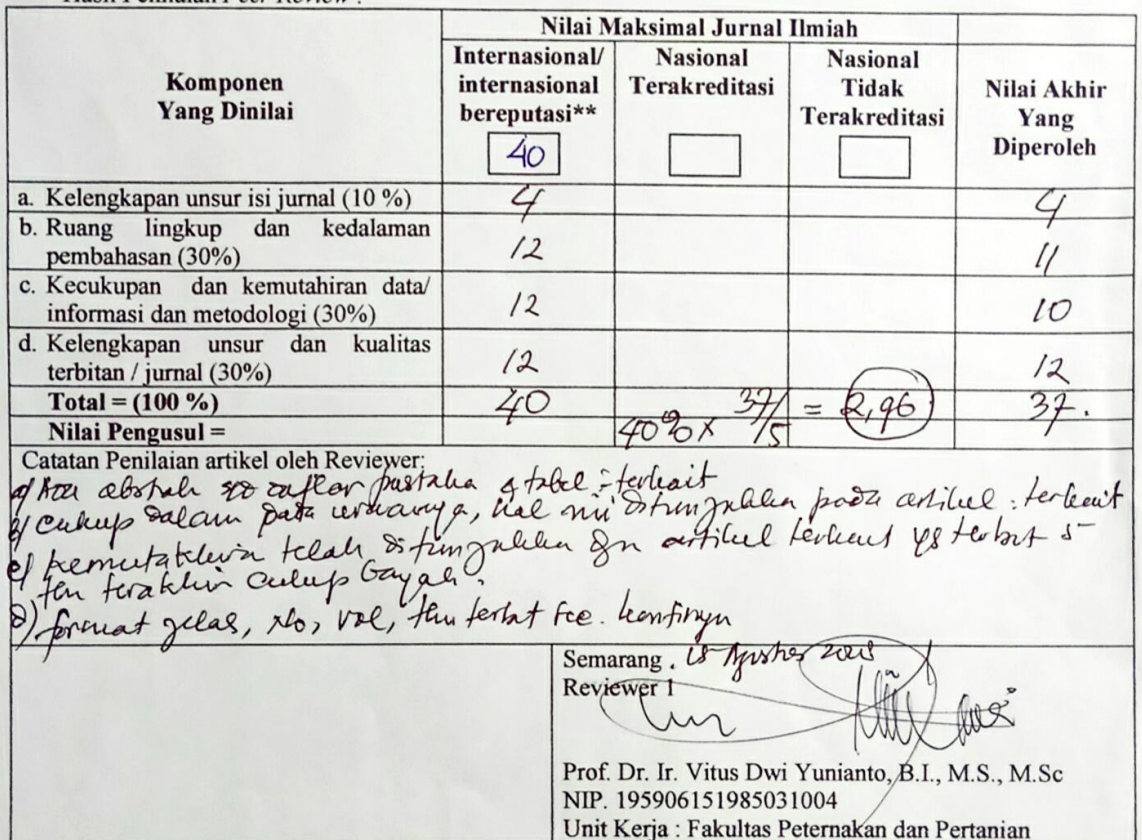 Hasil Penilaian Peer Review :
Komponen
Yang Dinilai
Nilai Maksimal Jurnal Ilmiah
Internasional/
internasional
bereputasi**
40
Nasional
Terakreditasi
Nasional
Tidak
Terakreditasi
Nilai Akhir
Yang
Diperoleh
a. Kelengkapan unsur isi jurnal (10 %) 4 4
b. Ruang lingkup dan kedalaman
pembahasan (30%) 12 11
c. Kecukupan dan kemutahiran data/
informasi dan metodologi (30%) 12 10
d. Kelengkapan unsur dan kualitas
terbitan / jurnal (30%) 12 12
Total = (100 %) 40 37.
Nilai Pengusul = 40% x 37/5 = 2,96
Catatan Penilaian artikel oleh Reviewer:
a) pustaka & tabel terkait
b) cukup dalam pada artikel terkait
c) kemutakhiran telah artikel terkait yg terbit 5
thn terakhir cukup
d) format jelas, No, vol, thn terbit
Semarang, Agustus
Reviewer 1
Prof. Dr. Ir. Vitus Dwi Yunianto, B.I., M.S., M.Sc
NIP. 195906151985031004
Unit Kerja : Fakultas Peternakan dan Pertanian